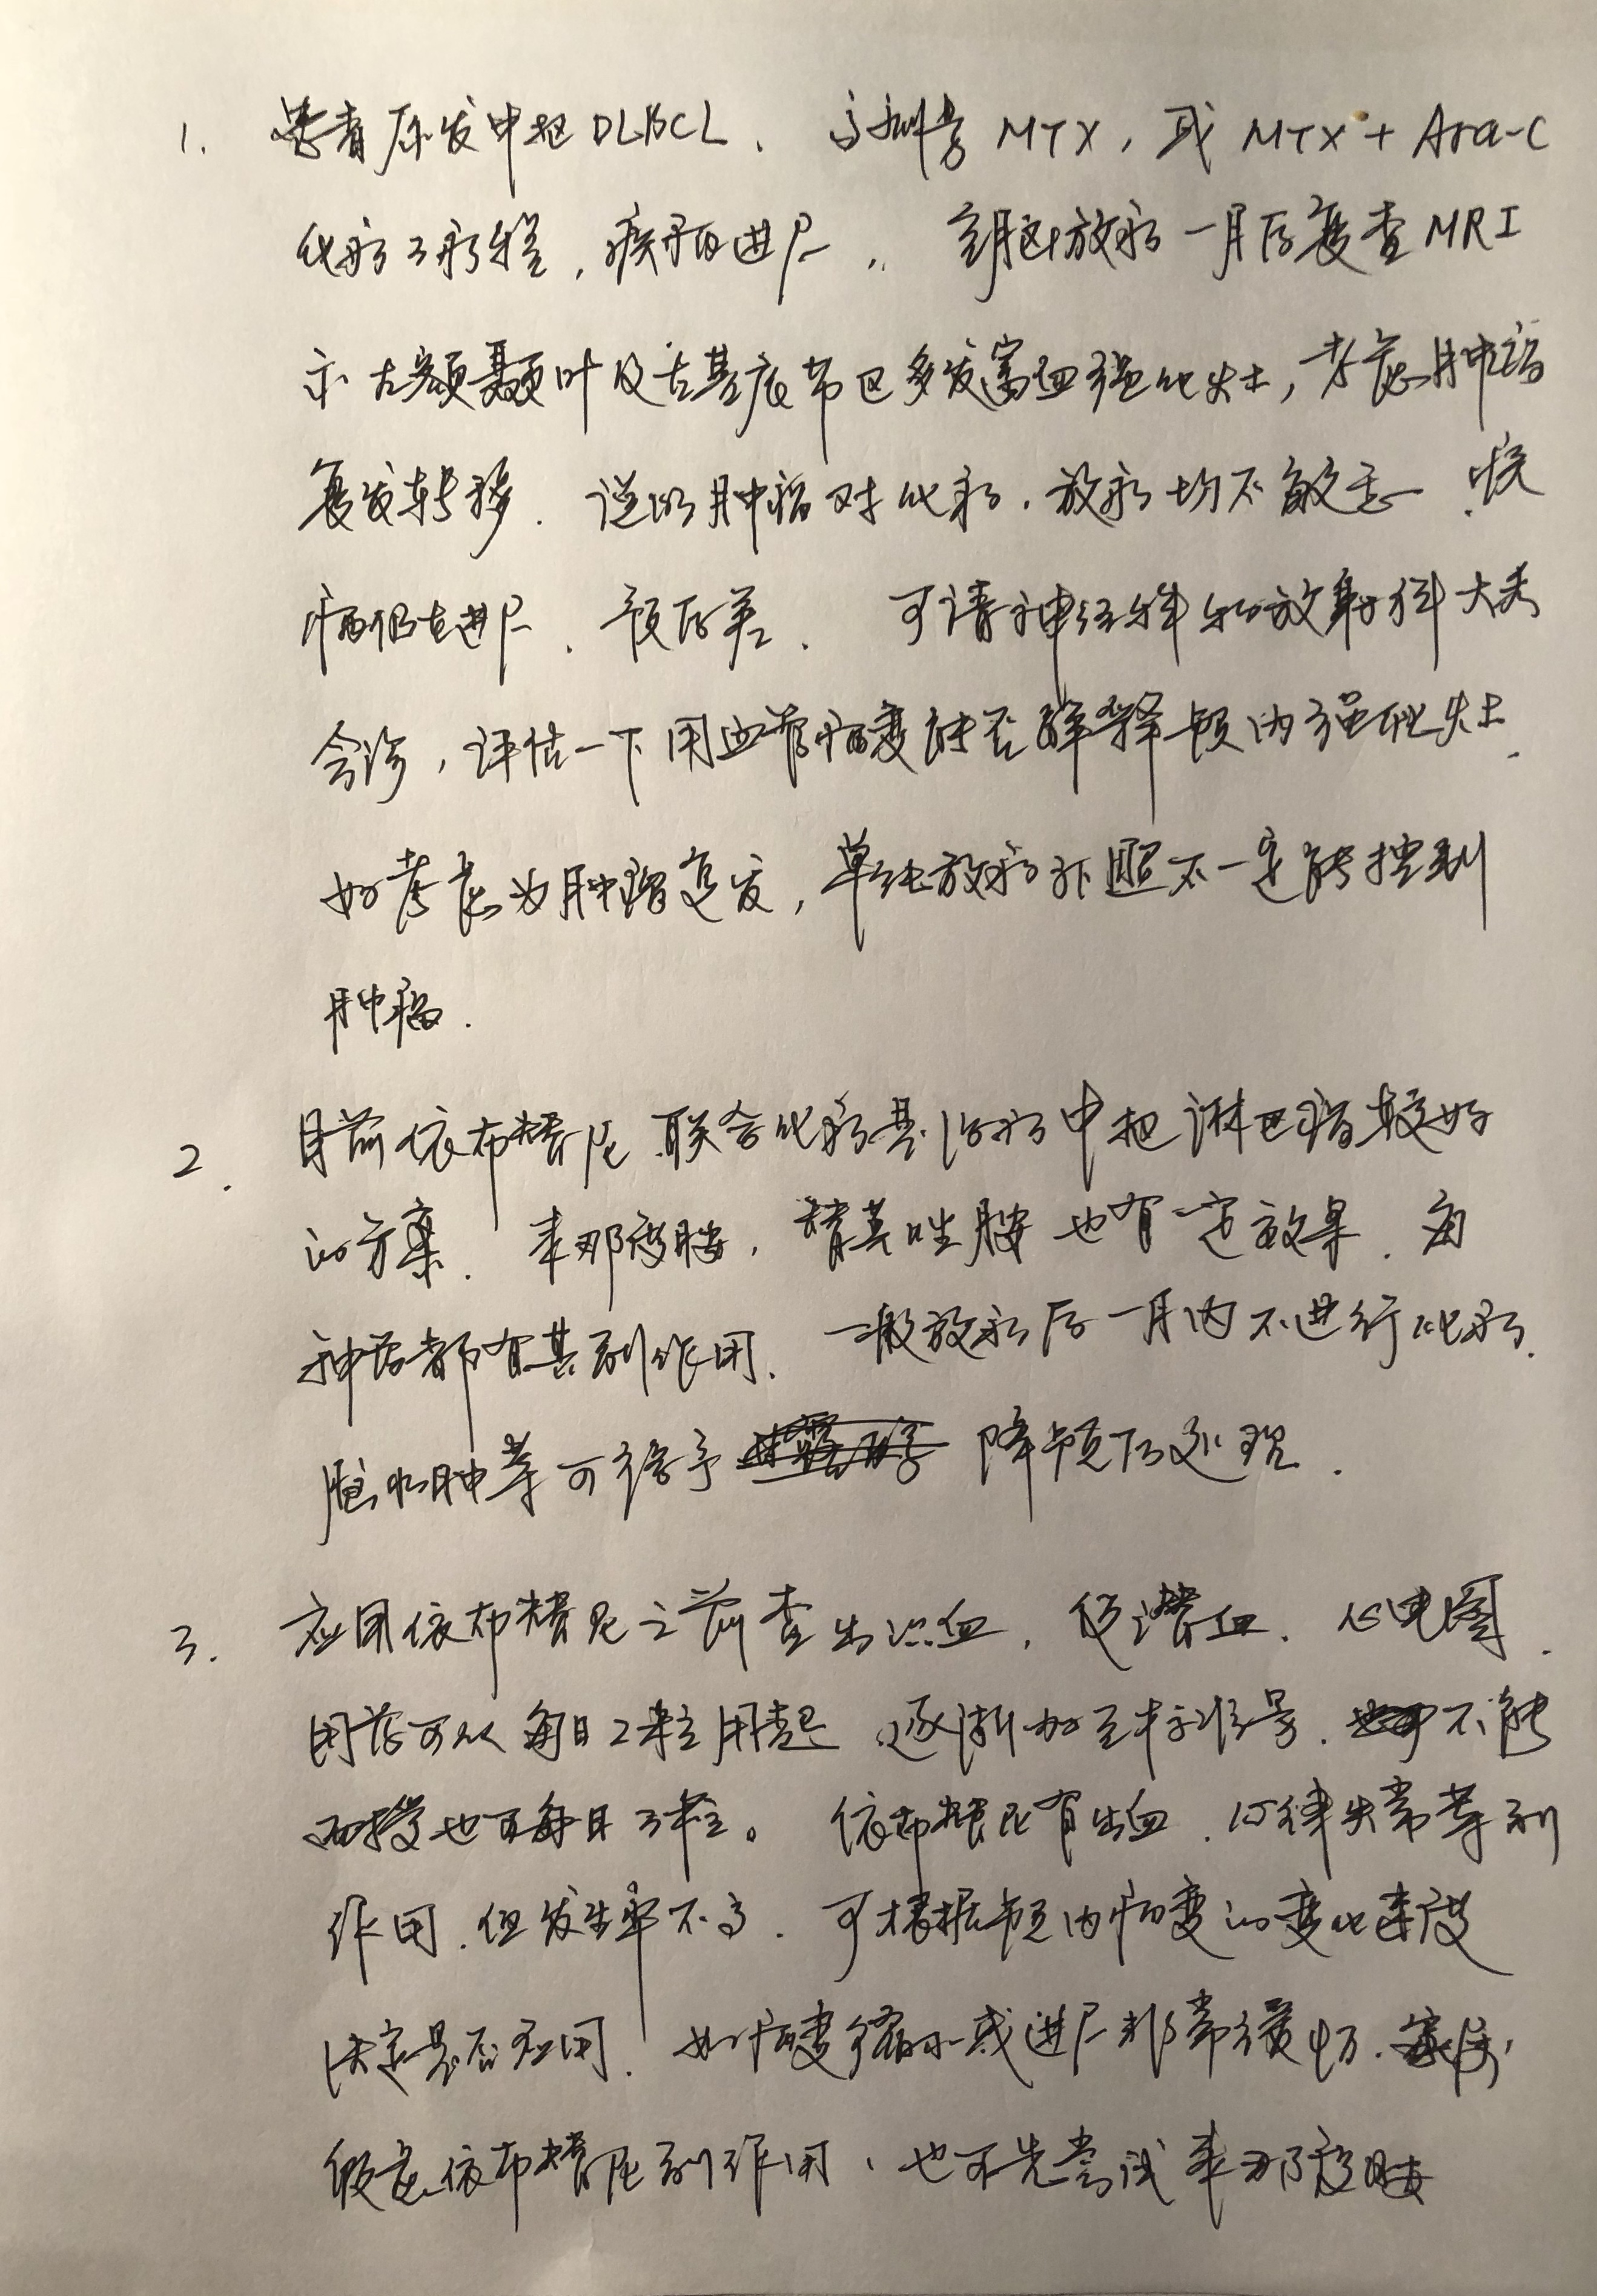 1. 患者原发中枢DLBCL、高剂量MTX,或MTX+Ara-C
化疗3疗程,疾病进展,全脑放疗一月后复查MRI
示右额颞叶及右基底节区多发富血强化灶,考虑肿瘤
复发转移.说明肿瘤对化疗.放疗均不敏感.疾
病仍在进展.预后差.可请神经科和放射科大夫
会诊,评估一下用血管病变能否解释颅内强化灶.
如考虑为肿瘤复发,单纯放疗补照不一定能控制
肿瘤.
2. 目前依布替尼联合化疗是治疗中枢淋巴瘤较好
的方案.来那度胺,替莫唑胺也有一定效果.每
种药都有其副作用.一般放疗后一月内不进行化疗.
脑水肿等可给予降颅压处理.
3. 应用依布替尼之前查出凝血,便潜血.心电图.
用药可从每日2粒用起 逐渐加至标准量.不能
耐受也可每日3粒。依布替尼有出血.心律失常等副
作用.但发生率不高.可根据颅内病变的变化速度
决定是否应用.如病变缩小或进展非常缓慢.家属
顾虑依布替尼副作用、也可先尝试来那度胺